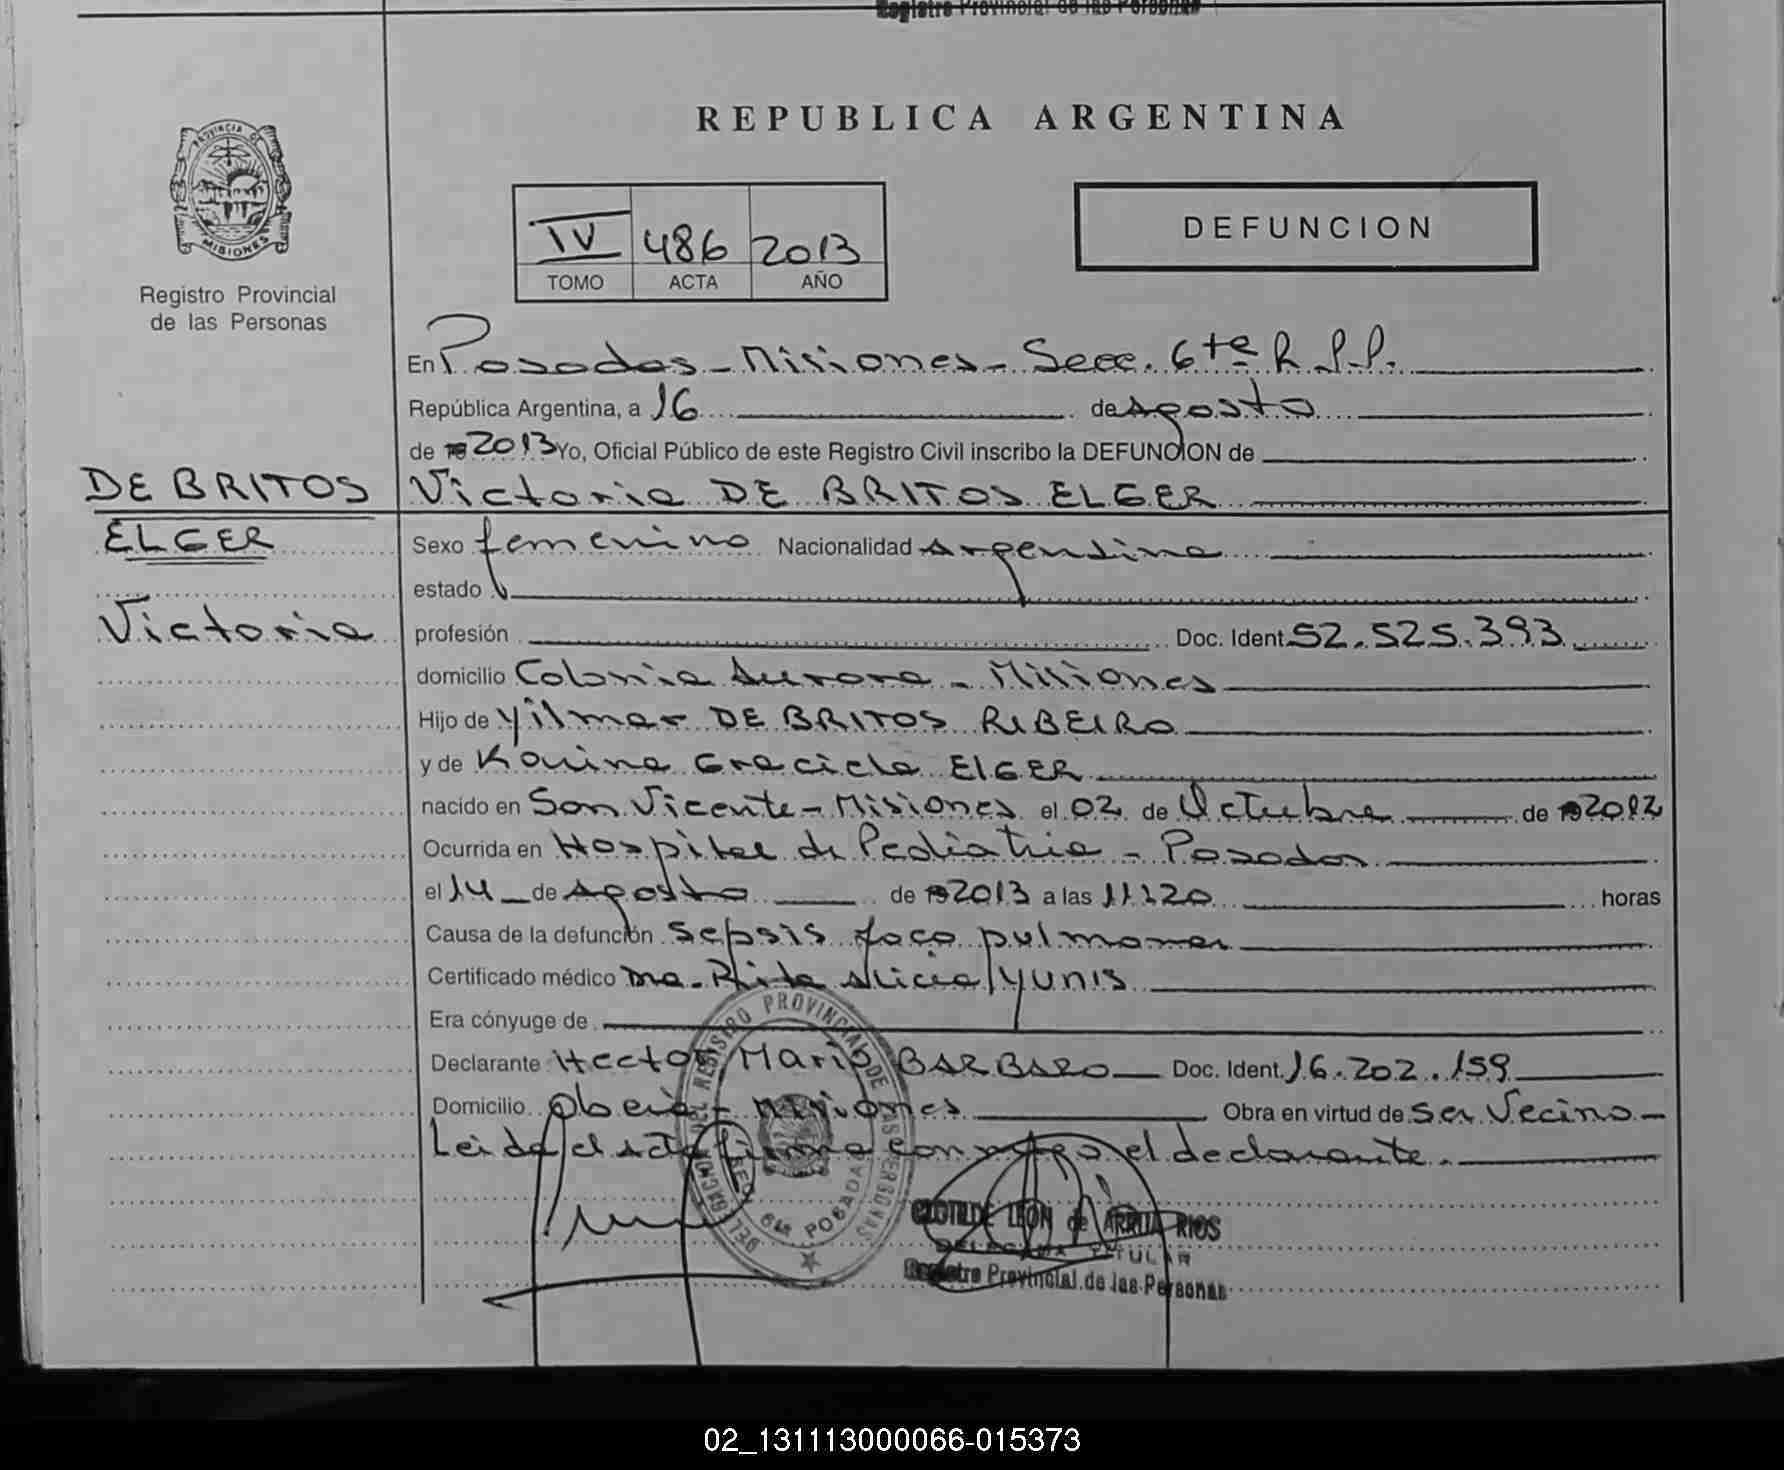 Registro Provincial de las Personas
REPUBLICA ARGENTINA
PROVINCIA DE
MISIONES
Registro Provincial
de las Personas
IV 486 2013
TOMO ACTA AÑO
DEFUNCION
En Posadas - Misiones - Secc. 6ta R.P.P.
República Argentina, a 16 de Agosto
de 2013 Yo, Oficial Público de este Registro Civil inscribo la DEFUNCION de
DE BRITOS Victoria DE BRITOS ELGER
ELGER
Sexo femenino Nacionalidad Argentina
estado
Victoria
profesión Doc. Ident. 52.525.393
domicilio Colonia Aurora - Misiones
Hijo de Yilmar DE BRITOS RIBEIRO
y de Karina Graciela ELGER
nacido en San Vicente - Misiones el 02 de Octubre de 2012
Ocurrida en Hospital de Pediatria - Posadas
el 14 de Agosto de 2013 a las 11:20 horas
Causa de la defunción Sepsis foco pulmonar
Certificado médico Dra. Rita Alicia YUNIS
Era cónyuge de
Declarante Hector Mario BARBARO Doc. Ident. 16.202.159
Domicilio Oberá - Misiones Obra en virtud de Ser Vecino -
Leida el acta firma conmigo el declarante.
DEL REGISTRO PROVINCIAL DE LAS PERSONAS
POSADAS
CLOTILDE LEON de ARRUA RIOS
DELEGADA TITULAR
Registro Provincial de las Personas
02_131113000066-015373